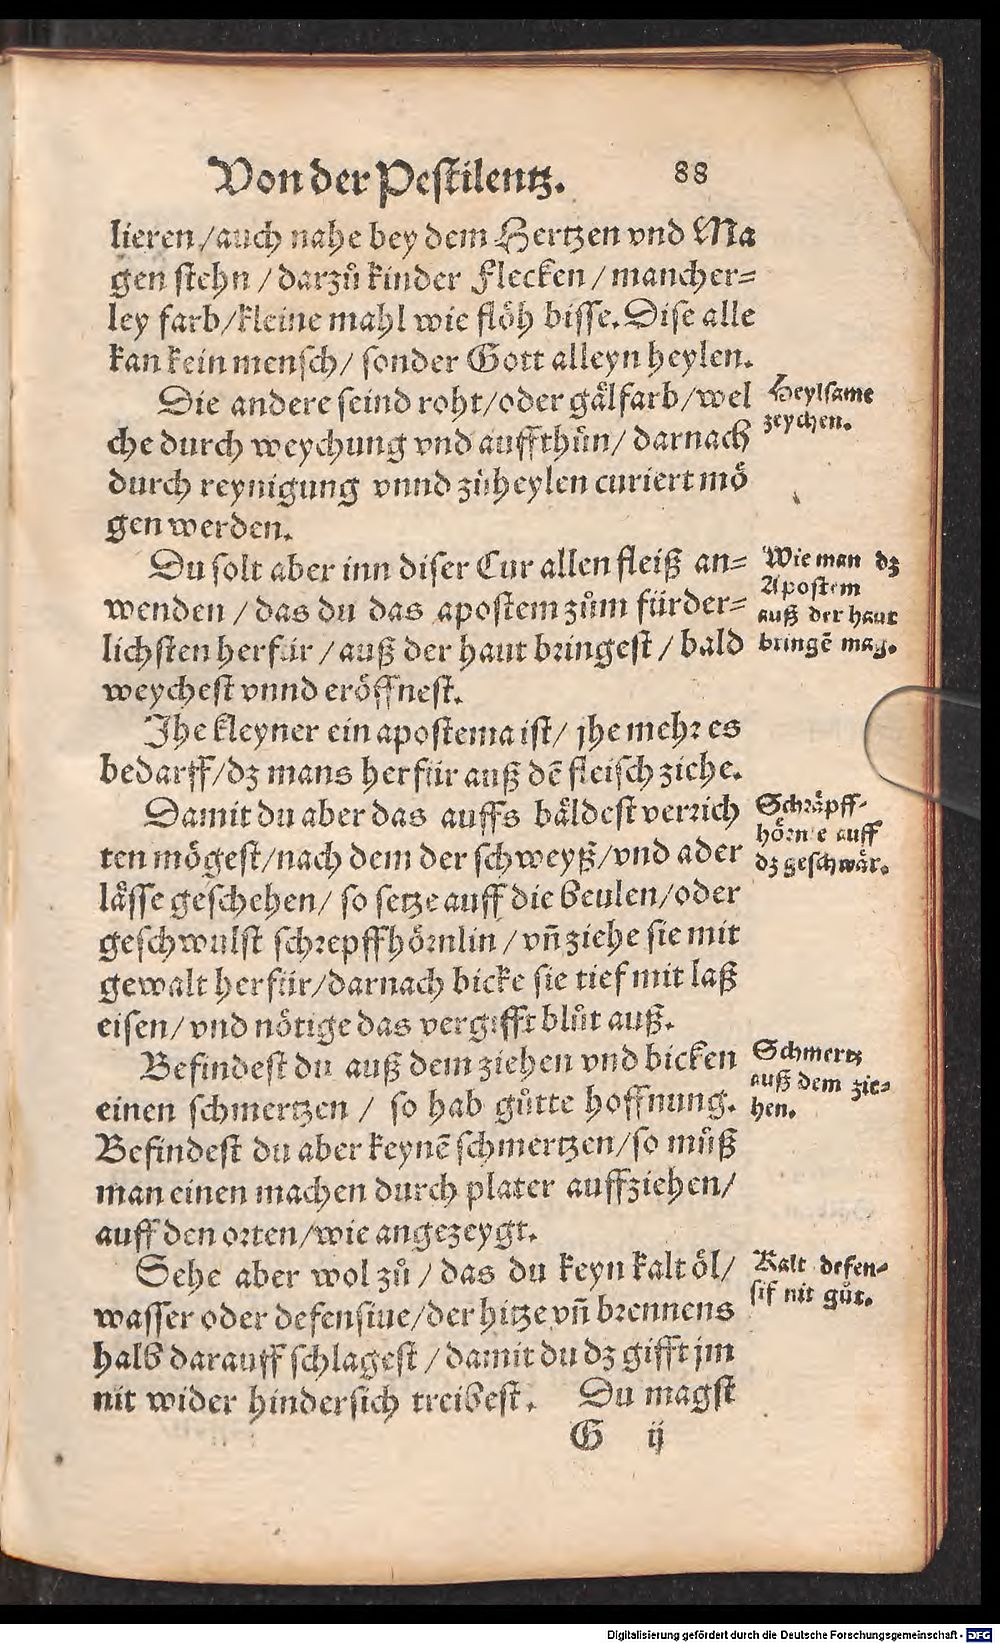 Von der Pestilentz. 88
lieren/auch nahe bey dem Hertzen vnd Ma
gen stehn / darzů kinder Flecken / mancher=
ley farb/kleine mahl wie flöh bisse. Dise alle
kan kein mensch/ sonder Gott alleyn heylen.
Die andere seind roht/oder gälfarb/wel
che durch weychung vnd auffthůn/ darnach
durch reynigung vnnd zůheylen curiert mö
gen werden.
Heylsame
zeychen.
Du solt aber inn diser Cur allen fleiß an=
wenden / das du das apostem zům fürder=
lichsten herfür / auß der haut bringest / bald
weychest vnnd eröffnest.
Wie man dz
Apostem
auß der haut
bringē mag.
Jhe kleyner ein apostema ist/ jhe mehr es
bedarff/dz mans herfür auß dē fleisch ziehe.
Damit du aber das auffs bäldest verrich
ten mögest/nach dem der schweyß/vnd ader
lässe geschehen/ so setze auff die beulen/oder
geschwulst schrepffhörnlin / vñ ziehe sie mit
gewalt herfür/darnach bicke sie tief mit laß
eisen/ vnd nötige das vergifft blůt auß.
Schräpff-
hörne auff
dz geschwär.
Befindest du auß dem ziehen vnd bicken
einen schmertzen / so hab gůtte hoffnung.
Befindest du aber keynē schmertzen/so můß
man einen machen durch plater auffziehen/
auff den orten/wie angezeygt.
Schmertz
auß dem zie=
hen.
Sehe aber wol zů / das du keyn kalt öl/
wasser oder defensiue/der hitze vñ brennens
halb darauff schlagest / damit du dz gifft jm
nit wider hindersich treibest. Du magst
Kalt defen=
sif nit gůt.
G ij
Digitalisierung gefördert durch die Deutsche Forschungsgemeinschaft - DFG